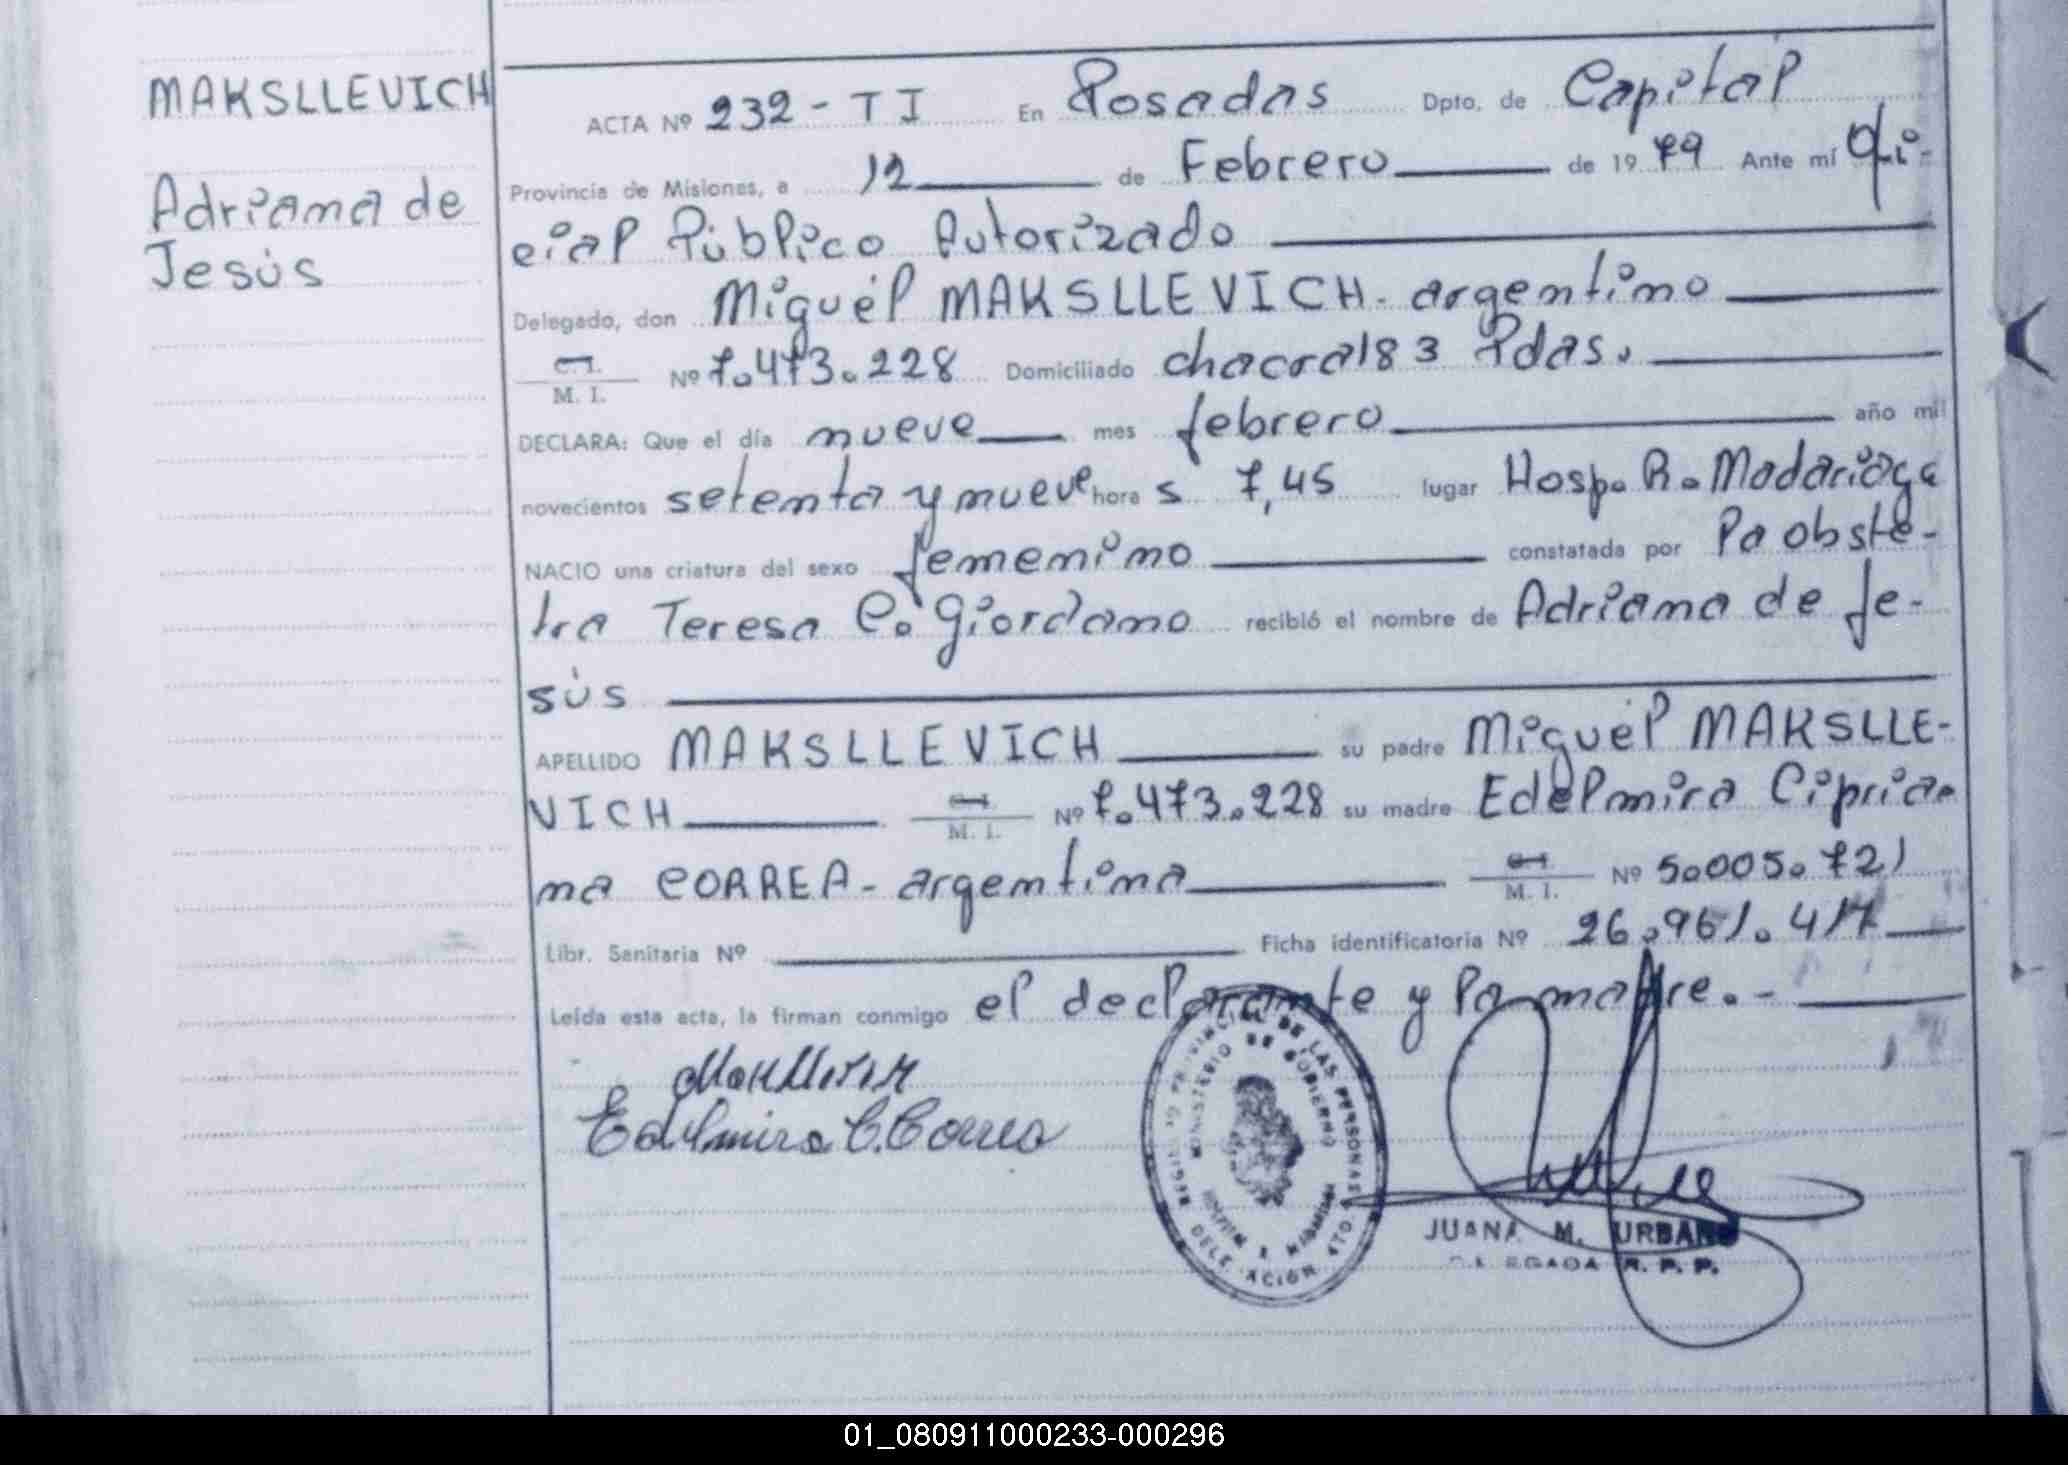 MAKSLLEVICH
Adriana de
Jesús
ACTA Nº 232 - TI En Posadas Dpto. de Capital
Provincia de Misiones, a 12 de Febrero de 1979 Ante mí Ofi-
cial Público Autorizado
Delegado, don Miguel MAKSLLEVICH - argentino
M. I. Nº 7.473.228 Domiciliado chacra 183 Pdas.
DECLARA: Que el día nueve mes febrero año mil
novecientos setenta y nueve hora s 7,45 lugar Hosp. R. Madariaga
NACIO una criatura del sexo femenino constatada por la obste-
tra Teresa C. Giordano recibió el nombre de Adriana de Je-
sús
APELLIDO MAKSLLEVICH su padre Miguel MAKSLLE-
VICH M. I. Nº 7.473.228 su madre Edelmira Cipria-
na CORREA - argentina M. I. Nº 5.005.721
Libr. Sanitaria Nº Ficha identificatoria Nº 26.961.417
Leída esta acta, la firman conmigo el declarante y la madre. -
Edelmira C. Correa
REGISTRO PROVINCIAL DE LAS PERSONAS
MINISTERIO DE GOBIERNO
HOSPITAL R. MADARIAGA
DELEGACIÓN 4TO
JUANA M. URBANO
DELEGADA R. P. P.
01_080911000233-000296